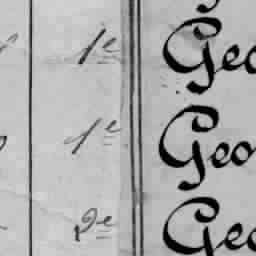 1e Geo
1e Geo
2e Geo